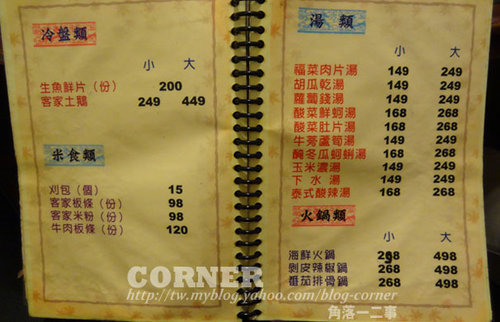 冷盤類
小 大
生魚鮮片（份） 200
客家土鵝 249 449
米食類
刈包（個） 15
客家板條（份） 98
客家米粉（份） 98
牛肉板條（份） 120
湯類
小 大
福菜肉片湯 149 249
胡瓜乾湯 149 249
蘿蔔錢湯 149 249
酸菜鮮蚵湯 168 268
酸菜肚片湯 168 268
牛蒡蘆筍湯 149 249
醃冬瓜蚵蜊湯 168 268
玉米濃湯 149 249
下水湯 149 249
泰式酸辣湯 168 268
火鍋類
小 大
海鮮火鍋 268 498
剝皮辣椒鍋 268 498
番茄排骨鍋 268 498
CORNER
http://tw.myblog.yahoo.com/blog-corner
角落一二事